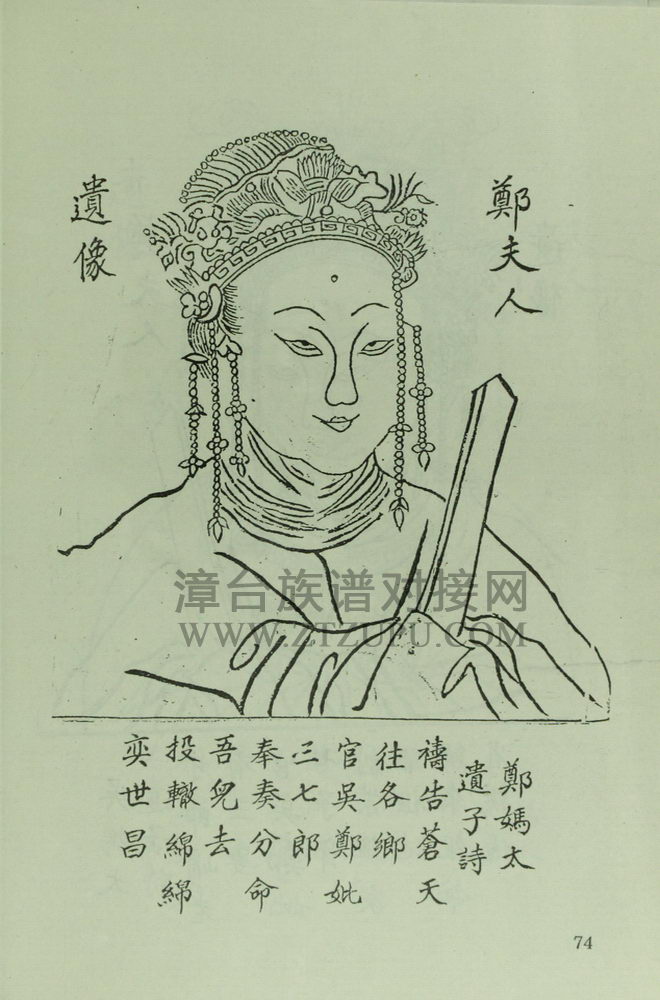 鄭夫人
遺像
鄭媽太
遺子詩
禱告蒼天
往各鄉
官吳鄭妣
三七郎
奉奏分命
吾兒去
投轍綿綿
奕世昌
漳台族谱对接网
WWW.ZTZUPU.COM
74